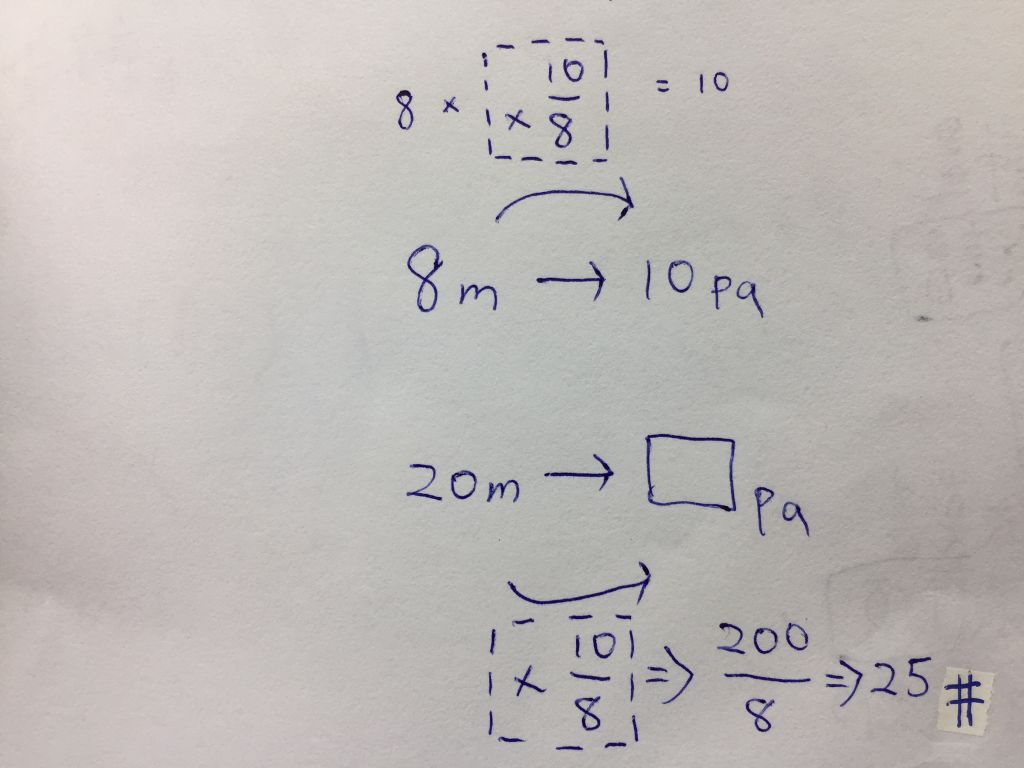 8 × × 10/8 = 10
8m → 10 pa
20m → □ pa
× 10/8 ⇒ 200/8 ⇒ 25 #